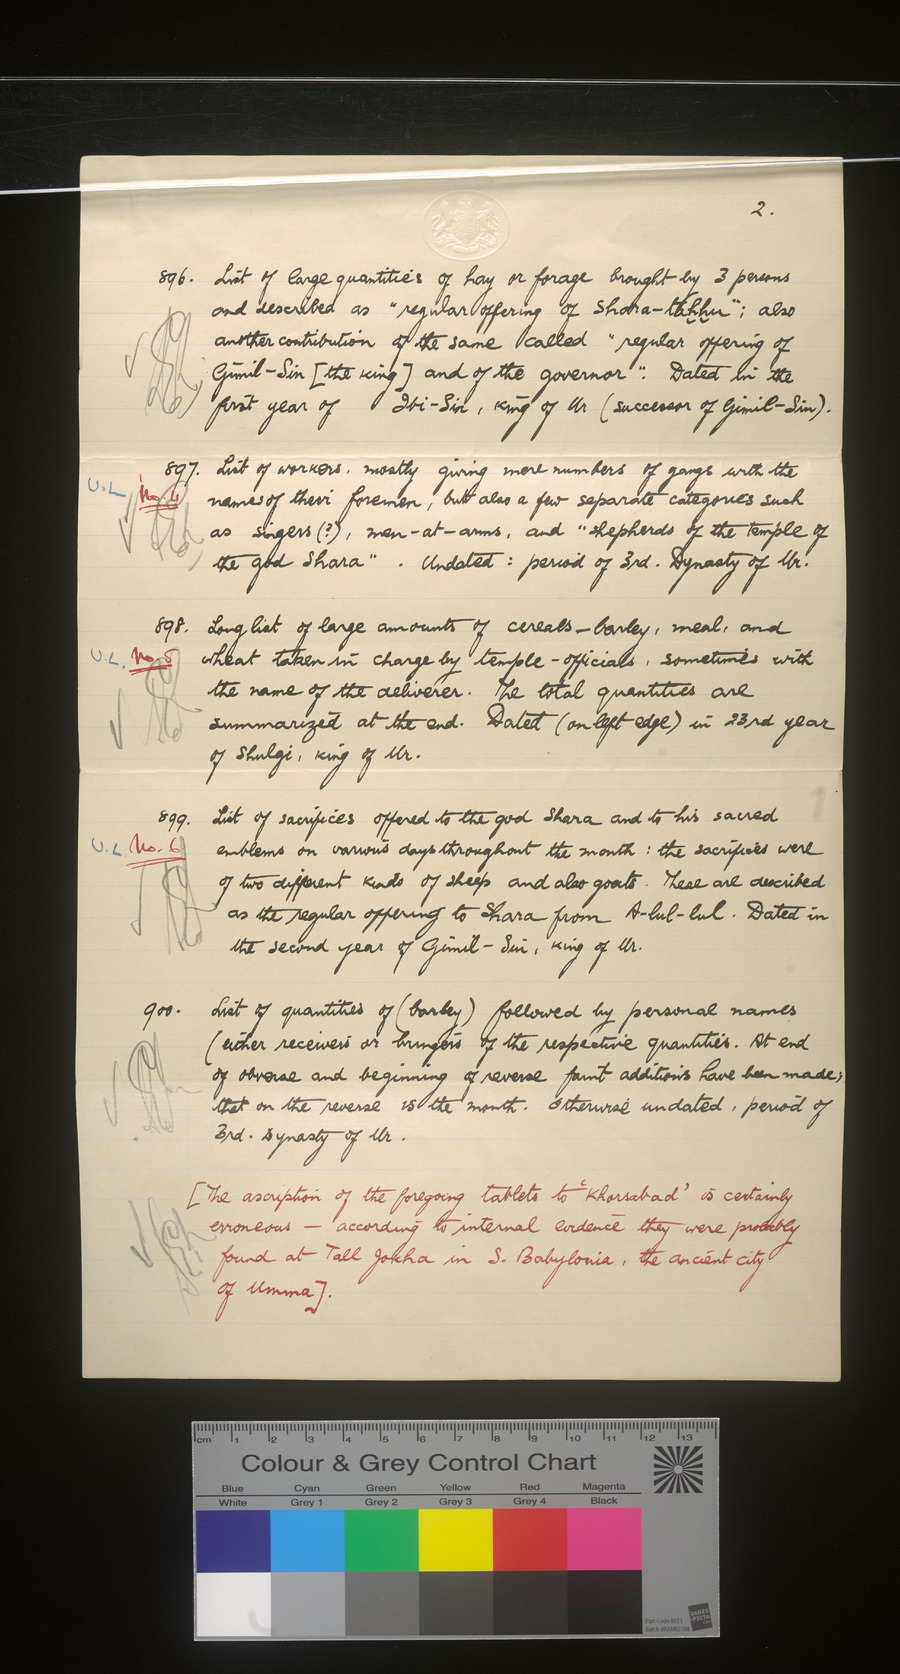 2.
896. List of large quantities of hay or forage brought by 3 persons
and described as "regular offering of Shara-taḫḫu"; also
another contribution of the same called "regular offering of
Gimil-Sin [the king] and of the governor". Dated in the
first year of Ibi-Sin, king of Ur (successor of Gimil-Sin).
897. List of workers, mostly giving mere numbers of gangs with the
U.L. No. 4 names of their foremen, but also a few separate categories such
as singers (?), men-at-arms, and "shepherds of the temple of
the god Shara". Undated: period of 3rd. Dynasty of Ur.
898. Long list of large amounts of cereals – barley, meal, and
U.L. No. 5 wheat taken in charge by temple-officials, sometimes with
the name of the deliverer. The total quantities are
summarized at the end. Dated (on left edge) in 23rd year
of Shulgi, king of Ur.
899. List of sacrifices offered to the god Shara and to his sacred
U.L. No. 6 emblems on various days throughout the month: the sacrifices were
of two different kinds of sheep and also goats. These are described
as the regular offering to Shara from A-lul-lul. Dated in
the second year of Gimil-Sin, king of Ur.
900. List of quantities of (barley) followed by personal names
(either receivers or bringers of the respective quantities. At end
of obverse and beginning of reverse faint additions have been made;
that on the reverse is the month. Otherwise undated, period of
3rd. Dynasty of Ur.
[The ascription of the foregoing tablets to 'Khorsabad' is certainly
erroneous – according to internal evidence they were probably
found at Tall Jokha in S. Babylonia, the ancient city
of Umma].
cm 1 2 3 4 5 6 7 8 9 10 11 12 13
Colour & Grey Control Chart
Blue Cyan Green Yellow Red Magenta
White Grey 1 Grey 2 Grey 3 Grey 4 Black
DANES
PICTA